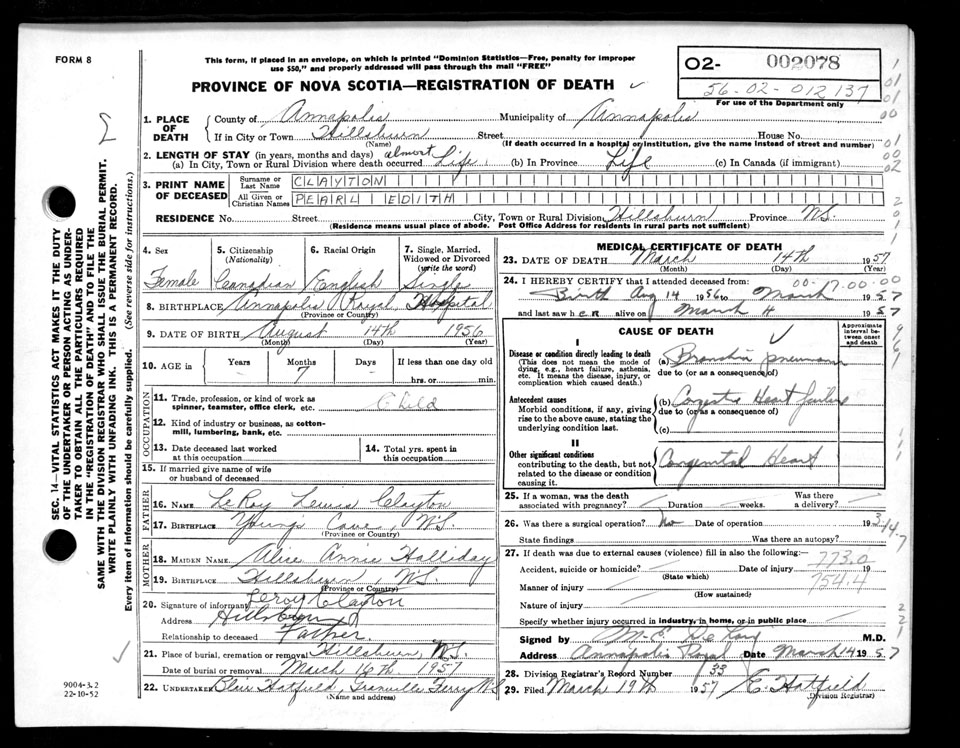 FORM 8
This form, if placed in an envelope, on which is printed "Dominion Statistics—Free, penalty for improper
use $50," and properly addressed will pass through the mail "FREE"
PROVINCE OF NOVA SCOTIA—REGISTRATION OF DEATH
O2- 002078
56-02-012137
For use of the Department only
1. PLACE OF DEATH
County of Annapolis Municipality of Annapolis
If in City or Town Hillsburn Street House No.
(Name) (If death occurred in a hospital or institution, give the name instead of street and number)
2. LENGTH OF STAY (in years, months and days)
(a) In City, Town or Rural Division where death occurred almost Life (b) In Province Life (c) In Canada (if immigrant)
3. PRINT NAME OF DECEASED
Surname or Last Name CLAYTON
All Given or Christian Names PEARL EDITH
RESIDENCE No. Street City, Town or Rural Division Hillsburn Province N.S.
(Residence means usual place of abode. Post Office Address for residents in rural parts not sufficient)
4. Sex Female
5. Citizenship (Nationality) Canadian
6. Racial Origin English
7. Single, Married, Widowed or Divorced (write the word) Single
8. BIRTHPLACE Annapolis Royal, Hospital
(Province or Country)
9. DATE OF BIRTH August 14th 1956
(Month) (Day) (Year)
10. AGE in Years Months 7 Days If less than one day old
hrs. or min.
OCCUPATION
11. Trade, profession, or kind of work as
spinner, teamster, office clerk, etc. Child
12. Kind of industry or business, as cotton-
mill, lumbering, bank, etc.
13. Date deceased last worked
at this occupation
14. Total yrs. spent in
this occupation
15. If married give name of wife
or husband of deceased
FATHER
16. NAME LeRoy Lewis Clayton
17. BIRTHPLACE Youngs Cove, N.S.
(Province or Country)
MOTHER
18. MAIDEN NAME Alice Annie Halliday
19. BIRTHPLACE Hillsburn, N.S.
(Province or Country)
20. Signature of informant Leroy Clayton
Address Hillsburn
Relationship to deceased Father.
21. Place of burial, cremation or removal Hillsburn, N.S.
Date of burial or removal March 16th 1957
22. UNDERTAKER Blair Hatfield, Granville Ferry N.S.
(Name and address)
MEDICAL CERTIFICATE OF DEATH
23. DATE OF DEATH March 14th 1957
(Month) (Day) (Year)
24. I HEREBY CERTIFY that I attended deceased from
Birth Aug 14 1956 to March 1957
and last saw her alive on March 4 1957
CAUSE OF DEATH
Approximate interval between onset and death
I
Disease or condition directly leading to death
(This does not mean the mode of
dying, e.g., heart failure, asthenia,
etc. It means the disease, injury, or
complication which caused death.)
(a)
due to (or as a consequence of)
Antecedent causes
Morbid conditions, if any, giving
rise to the above cause, stating the
underlying condition last.
(b) Heart failure
due to (or as a consequence of)
(c)
II
Other significant conditions
contributing to the death, but not
related to the disease or condition
causing it.
Congenital Heart
25. If a woman, was the death
associated with pregnancy? Duration weeks. Was there
a delivery?
26. Was there a surgical operation? No Date of operation 19
State findings Was there an autopsy?
27. If death was due to external causes (violence) fill in also the following:—
Accident, suicide or homicide? Date of injury 19
(State which)
773.0
754.4
Manner of injury
(How sustained)
Nature of injury
Specify whether injury occurred in industry, in home, or in public place
Signed by M.D.
Address Annapolis Royal Date March 14 1957
28. Division Registrar's Record Number 33
29. Filed March 19th 1957 E. Hatfield
Division Registrar
SEC. 14—VITAL STATISTICS ACT MAKES IT THE DUTY
OF THE UNDERTAKER OR PERSON ACTING AS UNDER-
TAKER TO OBTAIN ALL THE PARTICULARS REQUIRED
IN THE "REGISTRATION OF DEATH" AND TO FILE THE
SAME WITH THE DIVISION REGISTRAR WHO SHALL ISSUE THE BURIAL PERMIT.
WRITE PLAINLY WITH UNFADING INK. THIS IS A PERMANENT RECORD.
Every item of information should be carefully supplied. (See reverse side for instructions.)
9004-3.2
22-10-52